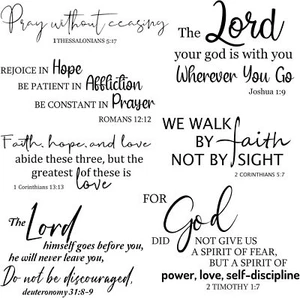 Pray without ceasing
1 THESSALONIANS 5:17
REJOICE IN Hope
BE PATIENT IN Affliction
BE CONSTANT IN Prayer
ROMANS 12:12
Faith, hope, and love
abide these three, but the
greatest of these is
love
1 Corinthians 13:13
The Lord
himself goes before you,
he will never leave you,
Do not be discouraged,
deuteronomy 31:8-9
The Lord
your god is with you
Wherever You Go
Joshua 1:9
WE WALK
BY faith
NOT BY SIGHT
2 CORINTHIANS 5:7
FOR
God
DID NOT GIVE US
A SPIRIT OF FEAR,
BUT A SPIRIT OF
power, love, self-discipline
2 TIMOTHY 1:7